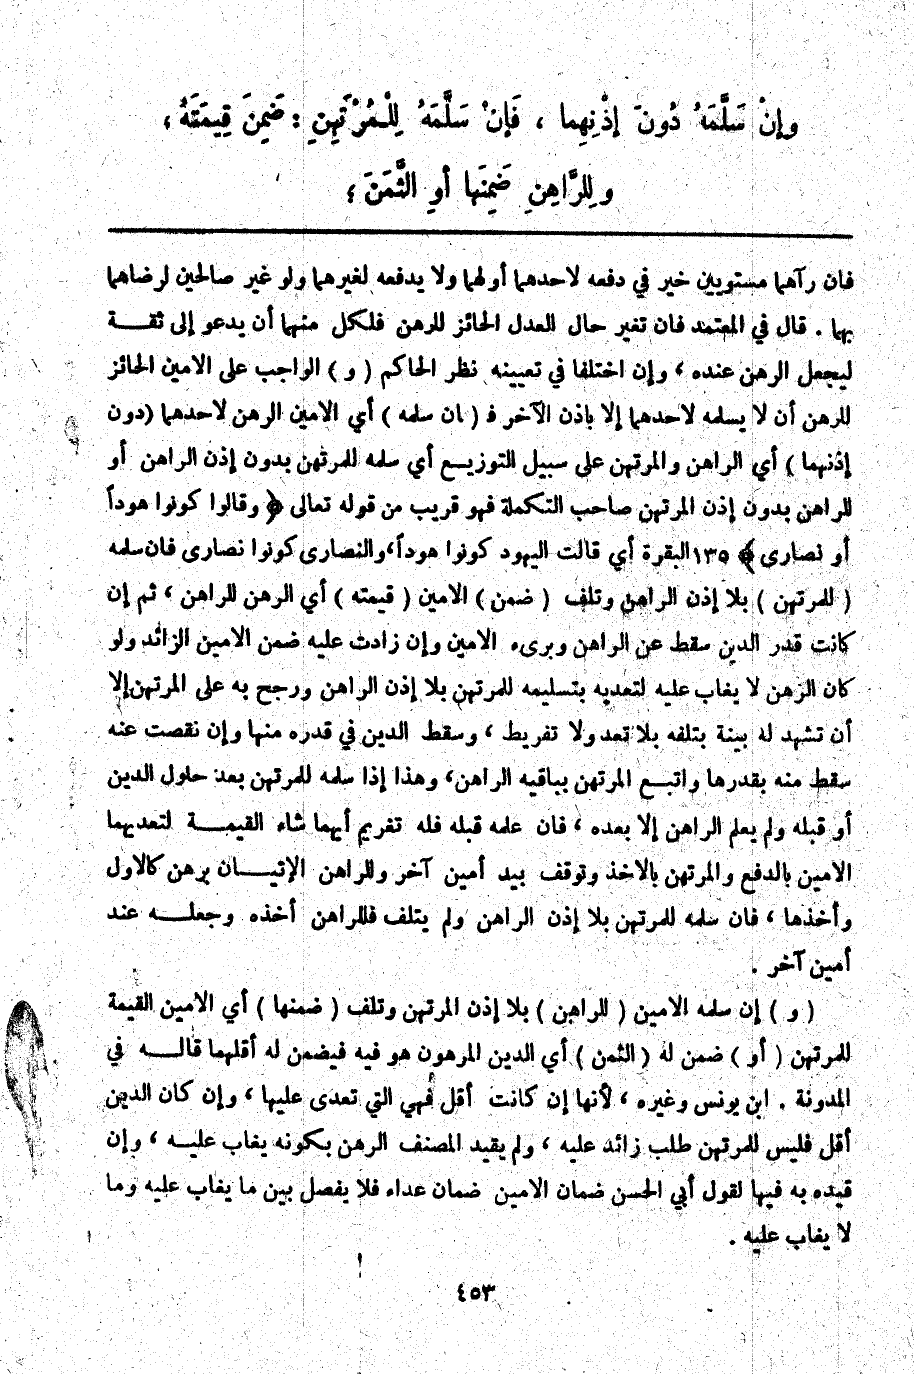 وإنْ سَلَّمَهُ دُونَ إذْنِهِما ، فَإنْ سَلَّمَهُ لِلْمُرْتَهِنِ : ضَمِنَ قِيمَتَهُ ؛
ولِلرَّاهِنِ ضَمِنَها أوِ الثَّمَنَ ؛
فان رآهما مستويين خير في دفعه لاحدهما أو لهما ولا يدفعه لغيرهما ولو غير صالحين لرضاهما
بهما . قال في المعتمد فان تغير حال العدل الحائز للرهن فلكل منهما أن يدعو إلى ثقــة
ليجعل الرهن عنده ، وإن اختلفا في تعيينه نظر الحاكم ( و ) الواجب على الامين الحائز
للرهن أن لا يسلمه لاحدهما إلا باذن الآخر فـ ( ان سلمه ) أي الامين الرهن لاحدهما (دون
إذنهما ) أي الراهن والمرتهن على سبيل التوزيــع أي سلمه للمرتهن بدون إذن الراهن أو
للراهن بدون إذن المرتهن صاحب التكملة فهو قريب من قوله تعالى ﴿ وقالوا كونوا هوداً
أو نصارى ﴾ ١٣٥ البقرة أي قالت اليهود كونوا هوداً،والنصارى كونوا نصارى فان سلمه
( للمرتهن ) بلا إذن الراهن وتلف ( ضمن ) الامين ( قيمته ) أي الرهن للراهن ، ثم إن
كانت قدر الدين سقط عن الراهن وبرىء الامين وإن زادت عليه ضمن الامين الزائد ولو
كان الرهن لا يغاب عليه لتعديه بتسليمه للمرتهن بلا إذن الراهن ورجع به على المرتهن إلا
أن تشهد له بينة بتلفه بلا تعد ولا تفريط ، وسقط الدين في قدره منها وإن نقصت عنه
سقط منه بقدرها واتبــع المرتهن بباقيه الراهن، وهذا إذا سلمه للمرتهن بعد حلول الدين
أو قبله ولم يعلم الراهن إلا بعده ، فان علمه قبله فله تغريم أيهما شاء القيمــة لتعديهما
الامين بالدفع والمرتهن بالاخذ وتوقف بيد أمين آخر وللراهن الإتيــان برهن كالاول
وأخذها ، فان سلمه للمرتهن بلا إذن الراهن ولم يتلف فللراهن أخذه وجعلــه عند
أمين آخر .
( و ) إن سلمه الامين ( للراهن ) بلا إذن المرتهن وتلف ( ضمنها ) أي الامين القيمة
للمرتهن ( أو ) ضمن له ( الثمن ) أي الدين المرهون هو فيه فيضمن له أقلهما قالــه في
المدونة . ابن يونس وغيره ، لأنها إن كانت أقل فهي التي تعدى عليها ، وإن كان الدين
أقل فليس للمرتهن طلب زائد عليه ، ولم يقيد المصنف الرهن بكونه يغاب عليــه ، وإن
قيده به فيها لقول أبي الحسن ضمان الامين ضمان عداء فلا يفصل بين ما يغاب عليه وما
لا يغاب عليه .
٤٥٣